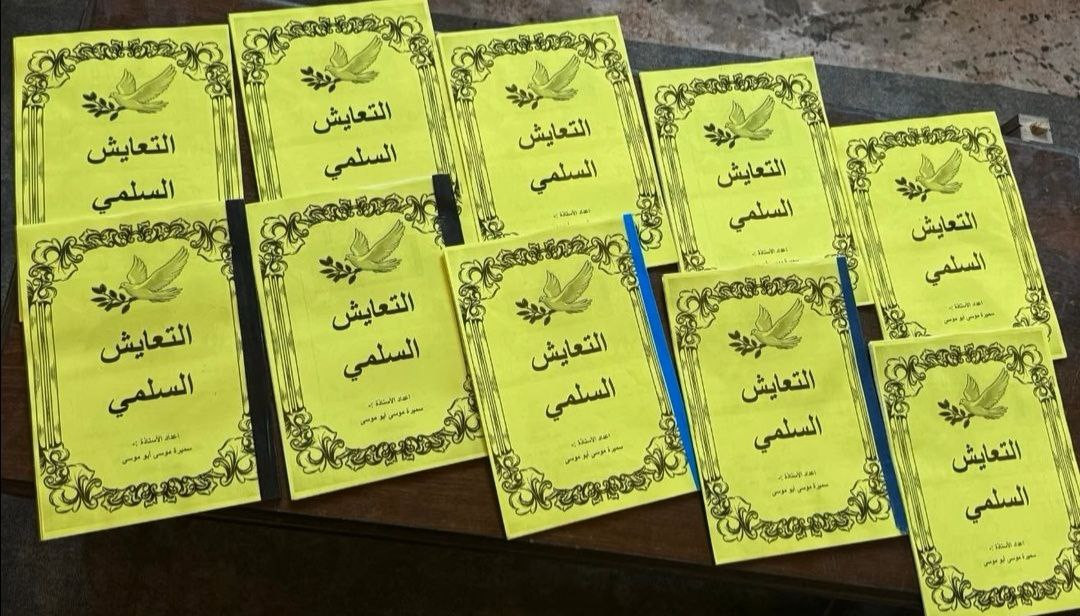 التعايش
السلمي
اعداد الأستاذة :
سميرة موسى ابو موسى
التعايش
السلمي
التعايش
السلمي
اعداد الأستاذة :
التعايش
السلمي
التعايش
السلمي
التعايش
السلمي
اعداد الأستاذة :
سميرة موسى ابو موسى
التعايش
السلمي
اعداد الأستاذة :
سميرة موسى ابو موسى
التعايش
السلمي
اعداد الأستاذة :
سميرة موسى ابو موسى
التعايش
السلمي
اعداد الأستاذة :
سميرة موسى ابو موسى
التعايش
السلمي
اعداد الأستاذة :
سميرة موسى ابو موسى